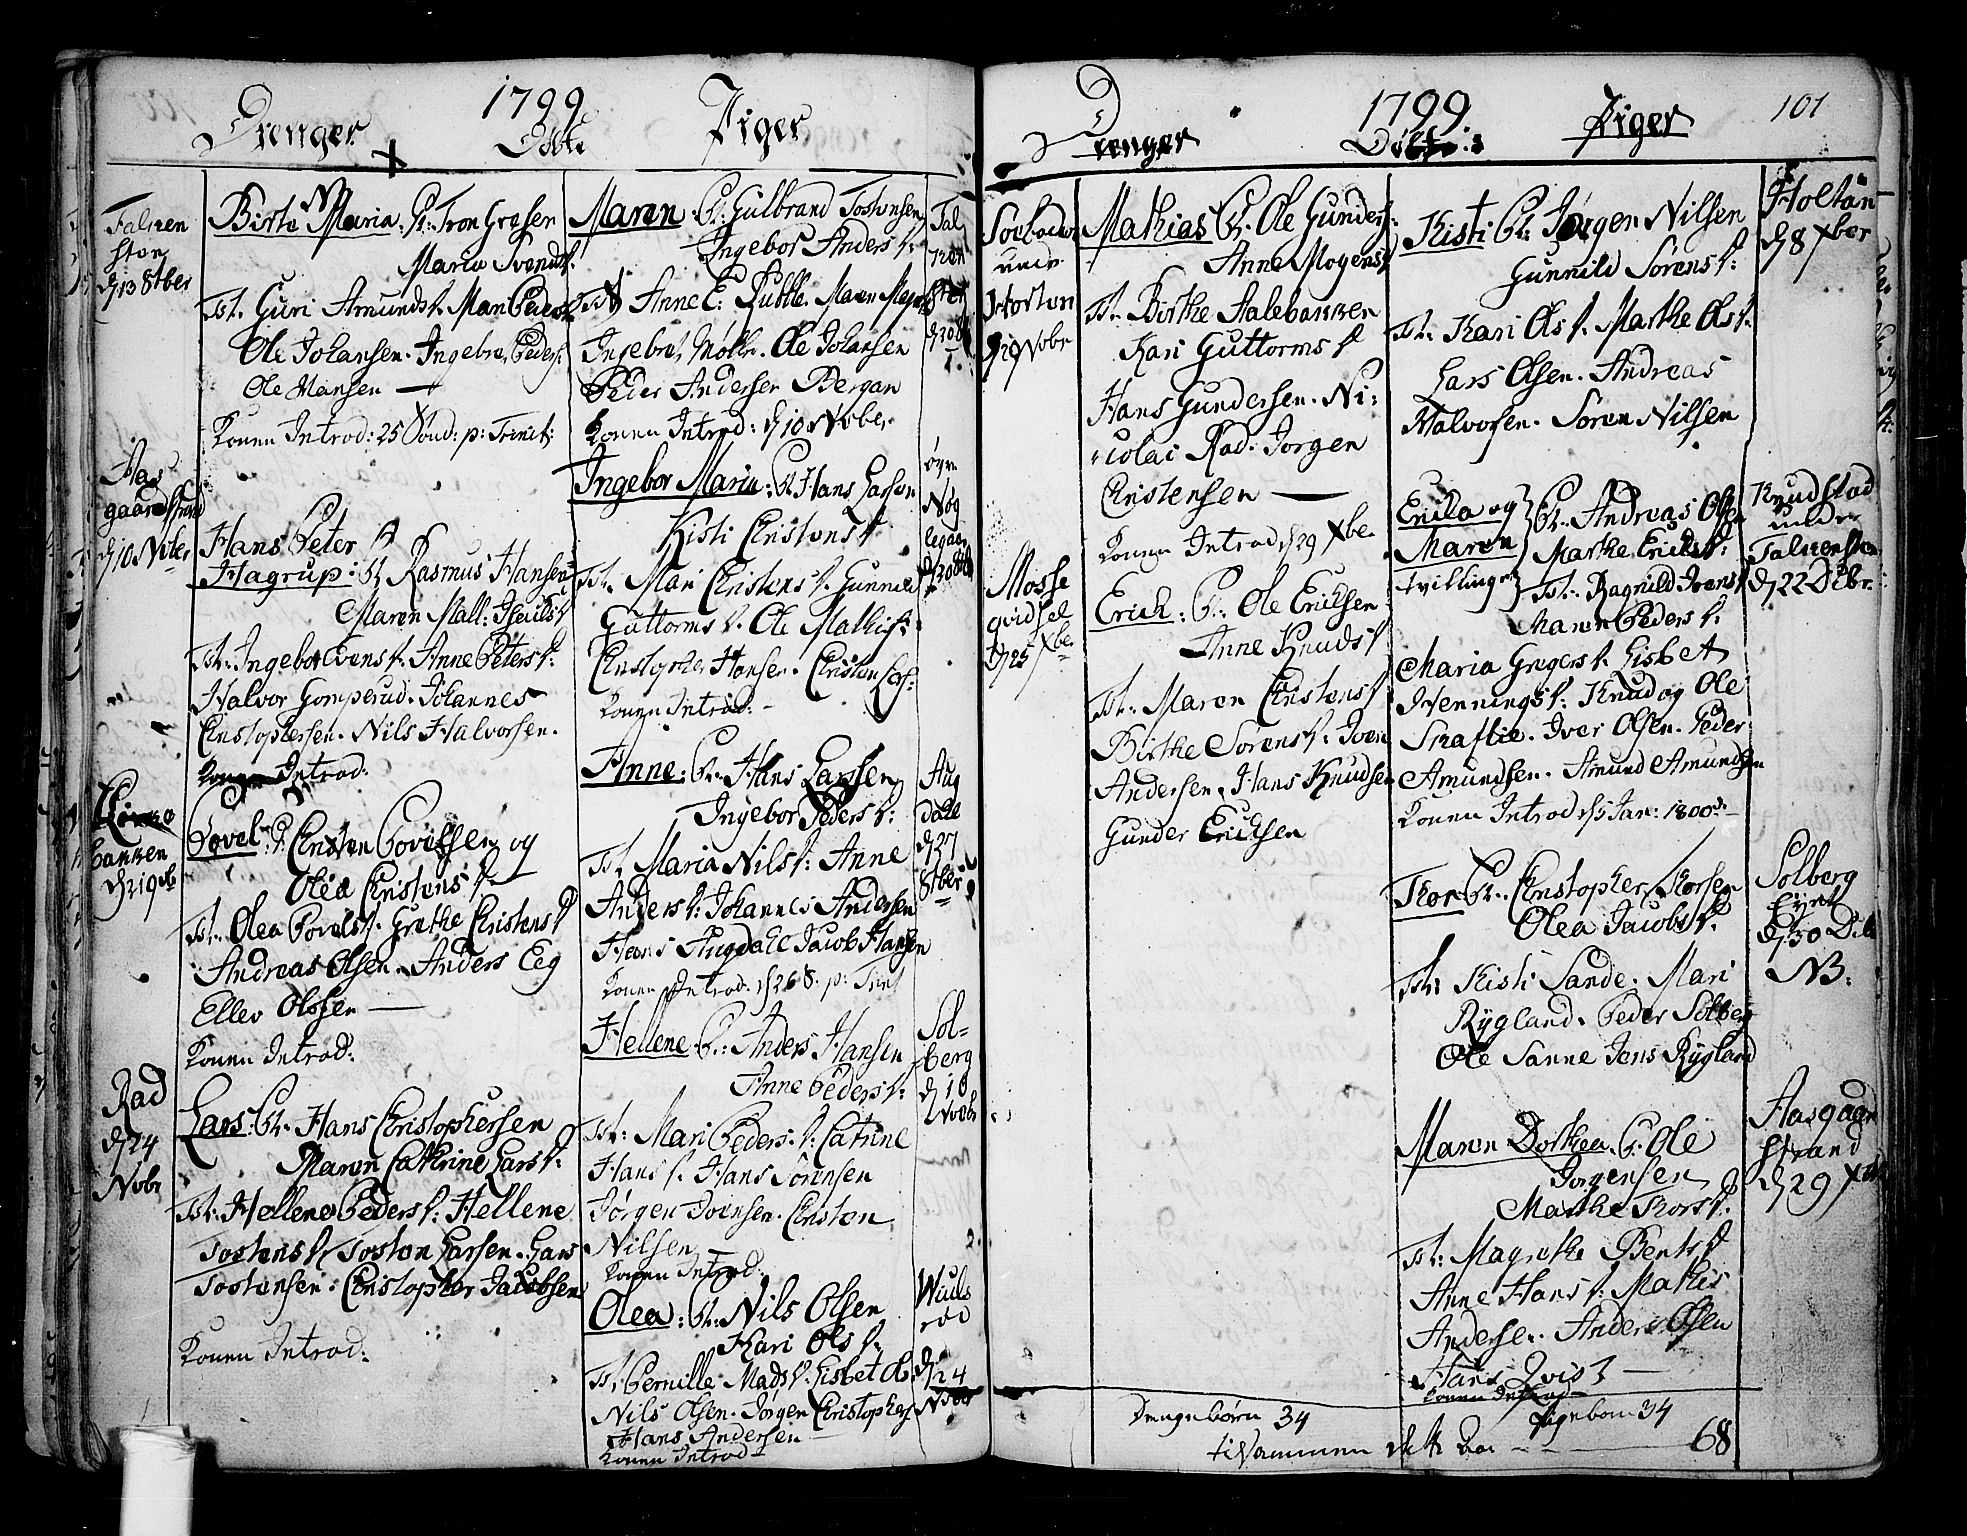 1799
Drenger Døbte Piger
Falken
sten
d 13 8tber
Birte Maria: Tron Gresen
Maria Svends
Tst. Guri Amunds Mari Peders
Ole Johansen. Ingebret Peders
Ole Hansen
Konen Introd: 25 Sønd: p: Trinit:
Aas
gaardstrand
d 10 Nvber
Hans Peter
Hagrup: Rasmus Hansen
Maren Mall:
Tst. Ingebor Evens Anne Peters
Halvor Gomperud. Johannes
Christophersen. Nils Halvorsen.
Konen Introd:
banken
d 21 9b
Povel: Christen Povelsen og
Olea Christens
Tst. Olea Povels Grethe Christens
Andreas Olsen. Anders Eeg
Ellev Olssen
Konen Introd:
Rad
d 24
Novbr
Lars: Hans Christophersen
Maren Cathrine Lars
Tst: Hellene Peders: Hellene
Tostens Tosten Larsen. Lars
Tostensen. Christopher Jacobsen
Konen Introd:
Maren: Gulbrand Tostensen
Ingebor Anders
Anne E: Rubbe. Maren
Ingebret Møller. Ole Johansen
Peder Andersen Bergan
Konen Introd: d 10 Nvber
Fal
ken
sten
Ingebor Maria: Hans Larsen
Kisti Christens
Tst. Mari Christens Gunnild
Guttorms Ole Mathis
Christopher Hansen. Christen Lars
Konen Introd:
øvre
Nøg
legaar
d 30
Anne: Hans Larsen
Ingebor Peders
Tst. Maria Nils: Anne
Anders: Johannes Andersen
Hans Augdahl Jacob Hansen
Konen Introd. d 26 S. p: Trint
Aug
dahl
d 27
8tber
Hellene: Anders Hansen
Anne Peders
Tst: Mari Peders: Catrine
Hans Hans Sørensen
Jørgen Ivensen. Christen
Nilsen
Konen Introd:
Sol-
berg
d 10
Novbr
Olea: Nils Olsen
Kari Ols
Tst: Pernille Mads. Lisbet Ols
Nils Olsen. Jørgen Christophers
Hans Andersen
Konen Introd
d 24
Novbr
1799
Drenger Døbte: Piger 101
unde
Horsten
d 29 Novbr
Mathias Ole Gunders:
Anne Mogens
Tst. Birthe Aalebakken
Kari Guttorms
Hans Gundersen. Ni:
colai Rad. Jorgen
Christensen
Konen Introd d 29 Xbe
Mosse
qvidsel
d 25 Xbe
Erick: Ole Ericksen
Anne Knuds
Tst. Maren Christens
Birthe Sørens: Iven
Andersen. Hans Knudsen
Gunder Ericksen
Kisti Jørgen Nilsen
Gunnild Sørens:
Tst: Kari Ols Marthe Ols
Lars Olsen. Andreas
Halvorsen. Søren Nilsen
Holtan
d 8 Xber
Ericka og
Maren
tvillinger
Andreas Olsen
Marthe Ericks:
Tst. Ragnild Ivens
Maren Peders
Maria Gregers Lisbet
Hennings: Knud og Ole
Skaftie. Iver Olsen. Peder
Amundsen. Amund Amundsen
Konen Introd d 5 Jan: 1800
Knudstad
under
Falkensten
d 22 Dcbr.
Thor Christopher Thorsen
Olea Jacobs
Tst: Kisti Sande. Mari
Rygland. Peder Solberg
Ole Sanne Jens Rygland
Solberg
Eyet
d 30 Dcb
NB:
Maren Dorthea: Ole
Jorgensen
Marthe Thors:
Tst: Magrethe Bents
Anne Hans: Mathis
Andersen. Anders Olsen
Hans Qvist
Konen Introd
Aasgaar
strand
d 29 Xbr
Drengebørn 34 Pigebørn 34
tilsammen 68